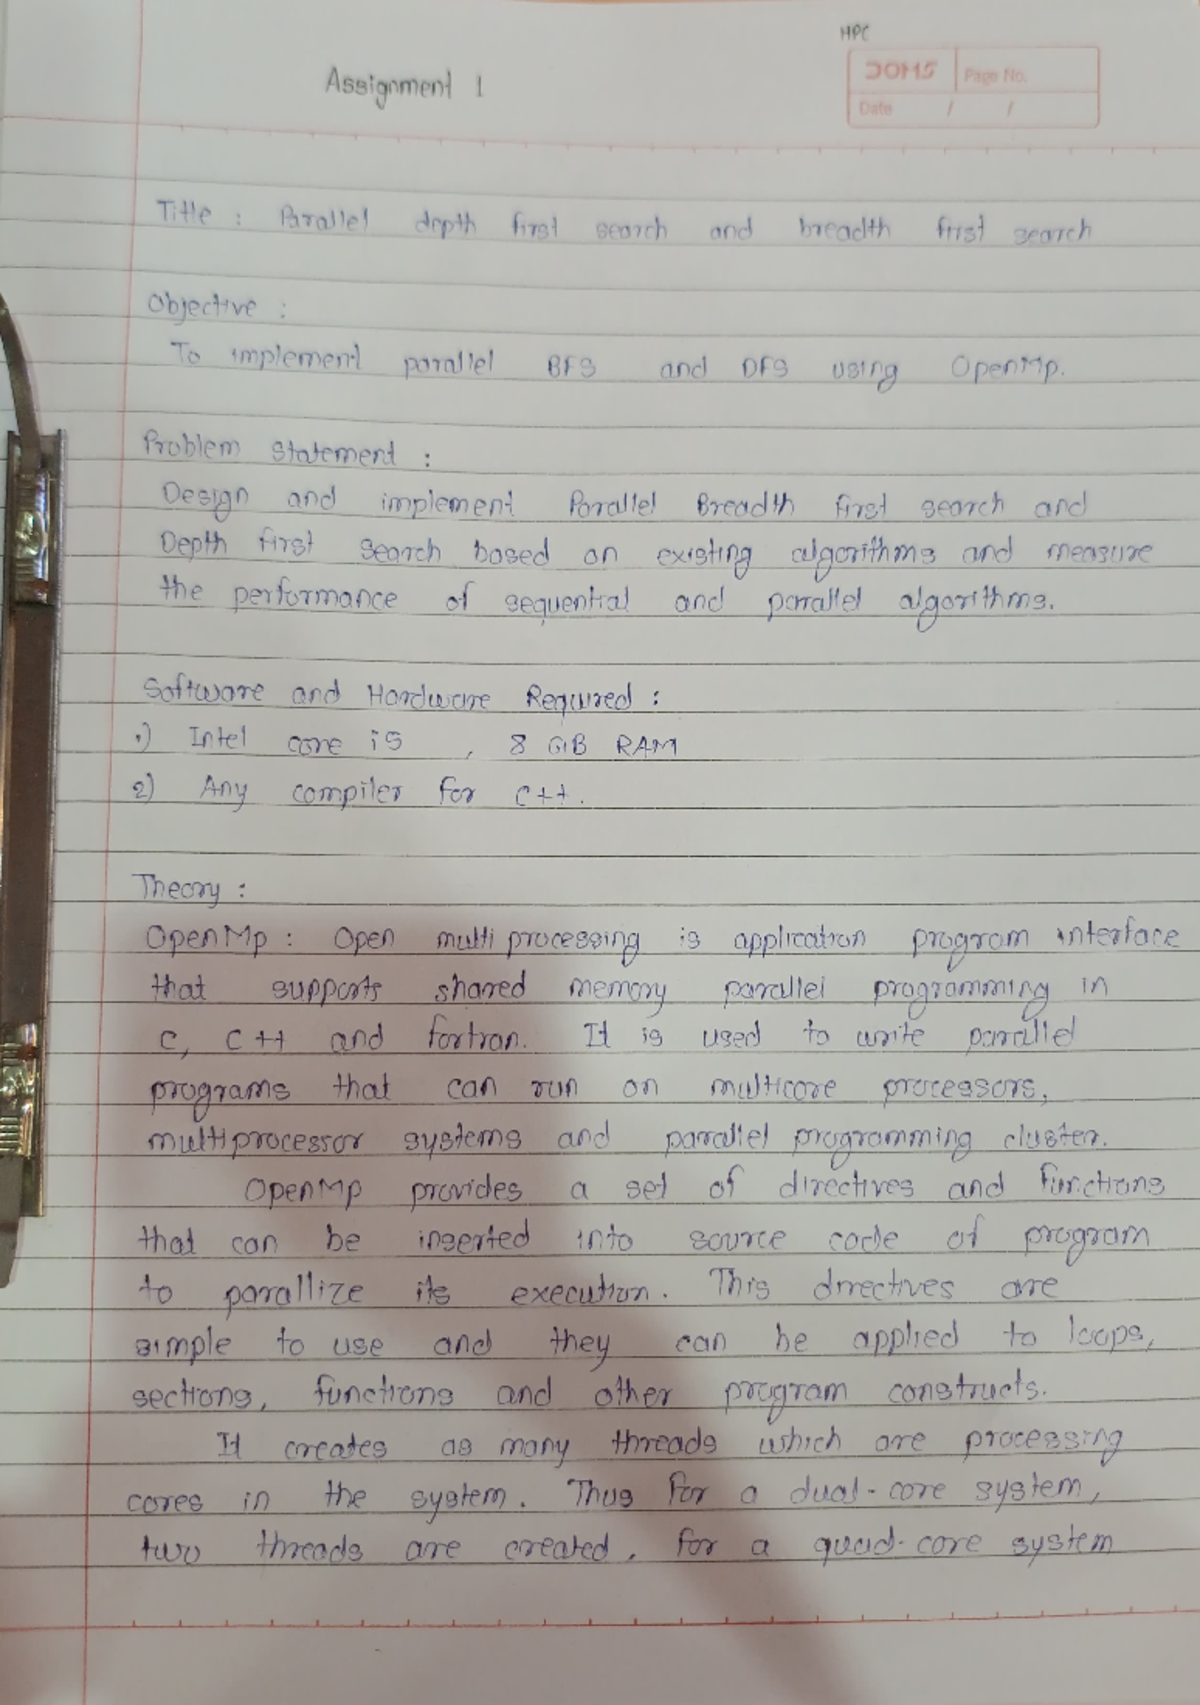 HPC
Assignment 1
JOMS Page No.
Date / /
Title : Parallel depth first search and breadth first search
Objective :
To implement parallel BFS and DFS using OpenMp.
Problem Statement :
Design and implement Parallel Breadth first search and
Depth first search based on existing algorithms and measure
the performance of sequential and parallel algorithms.
Software and Hardware Required :
1) Intel core i5 , 8 GB RAM
2) Any compiler for C++.
Theory :
OpenMp : Open multi processing is application program interface
that supports shared memory parallel programming in
C, C++ and fortran. It is used to write parallel
programs that can run on multicore processors,
multiprocessor systems and parallel programming cluster.
OpenMp provides a set of directives and functions
that can be inserted into source code of program
to parallize its execution. This directives are
simple to use and they can be applied to loops,
sections, functions and other program constructs.
It creates as many threads which are processing
cores in the system. Thus for a dual-core system,
two threads are created, for a quad-core system